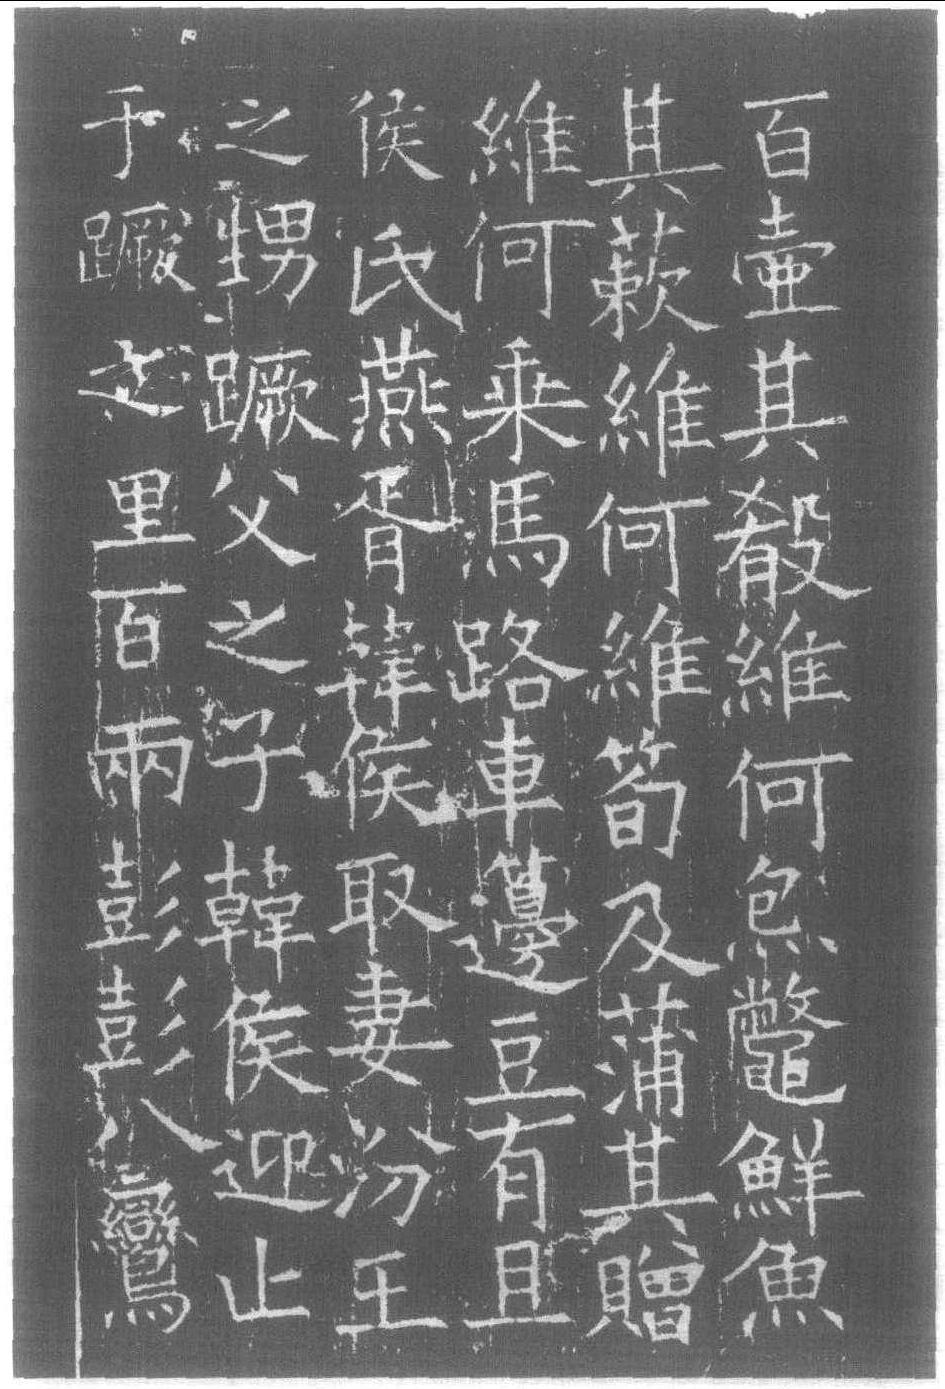 百壷其殽維何包鱉鮮魚
其蔌維何維筍及蒲其贈
維何乘馬路車籩豆有且
侯氏燕胥韓侯取妻汾王
之甥蹶父之子韓侯迎止
于蹶之里百兩彭彭八鸞